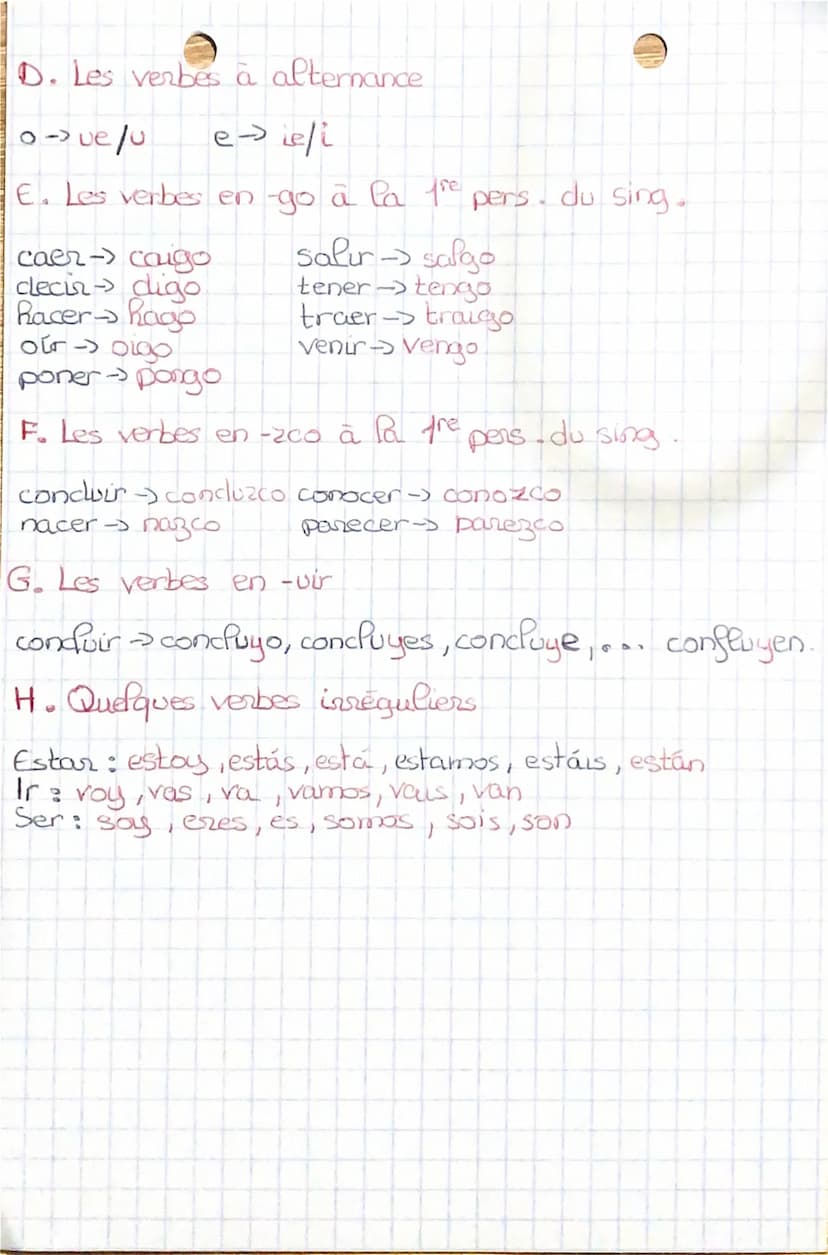 D. Les verbes à alternance
o -> ue/u e -> ie/i
E. Les verbes en -go à la 1re pers. du sing.
caer -> caigo salir -> salgo
decir -> digo tener -> tengo
hacer -> hago traer -> traigo
oír -> oigo venir -> vengo
poner -> pongo
F. Les verbes en -zco à la 1re pers. du sing.
concluir -> concluzco conocer -> conozco
nacer -> nazco parecer -> parezco
G. Les verbes en -uir
concluir -> concluyo, concluyes, concluye, ... confluyen.
H. Quelques verbes irréguliers
Estar : estoy, estás, está, estamos, estáis, están
Ir : voy, vas, va, vamos, vais, van
Ser : soy, eres, es, somos, sois, son